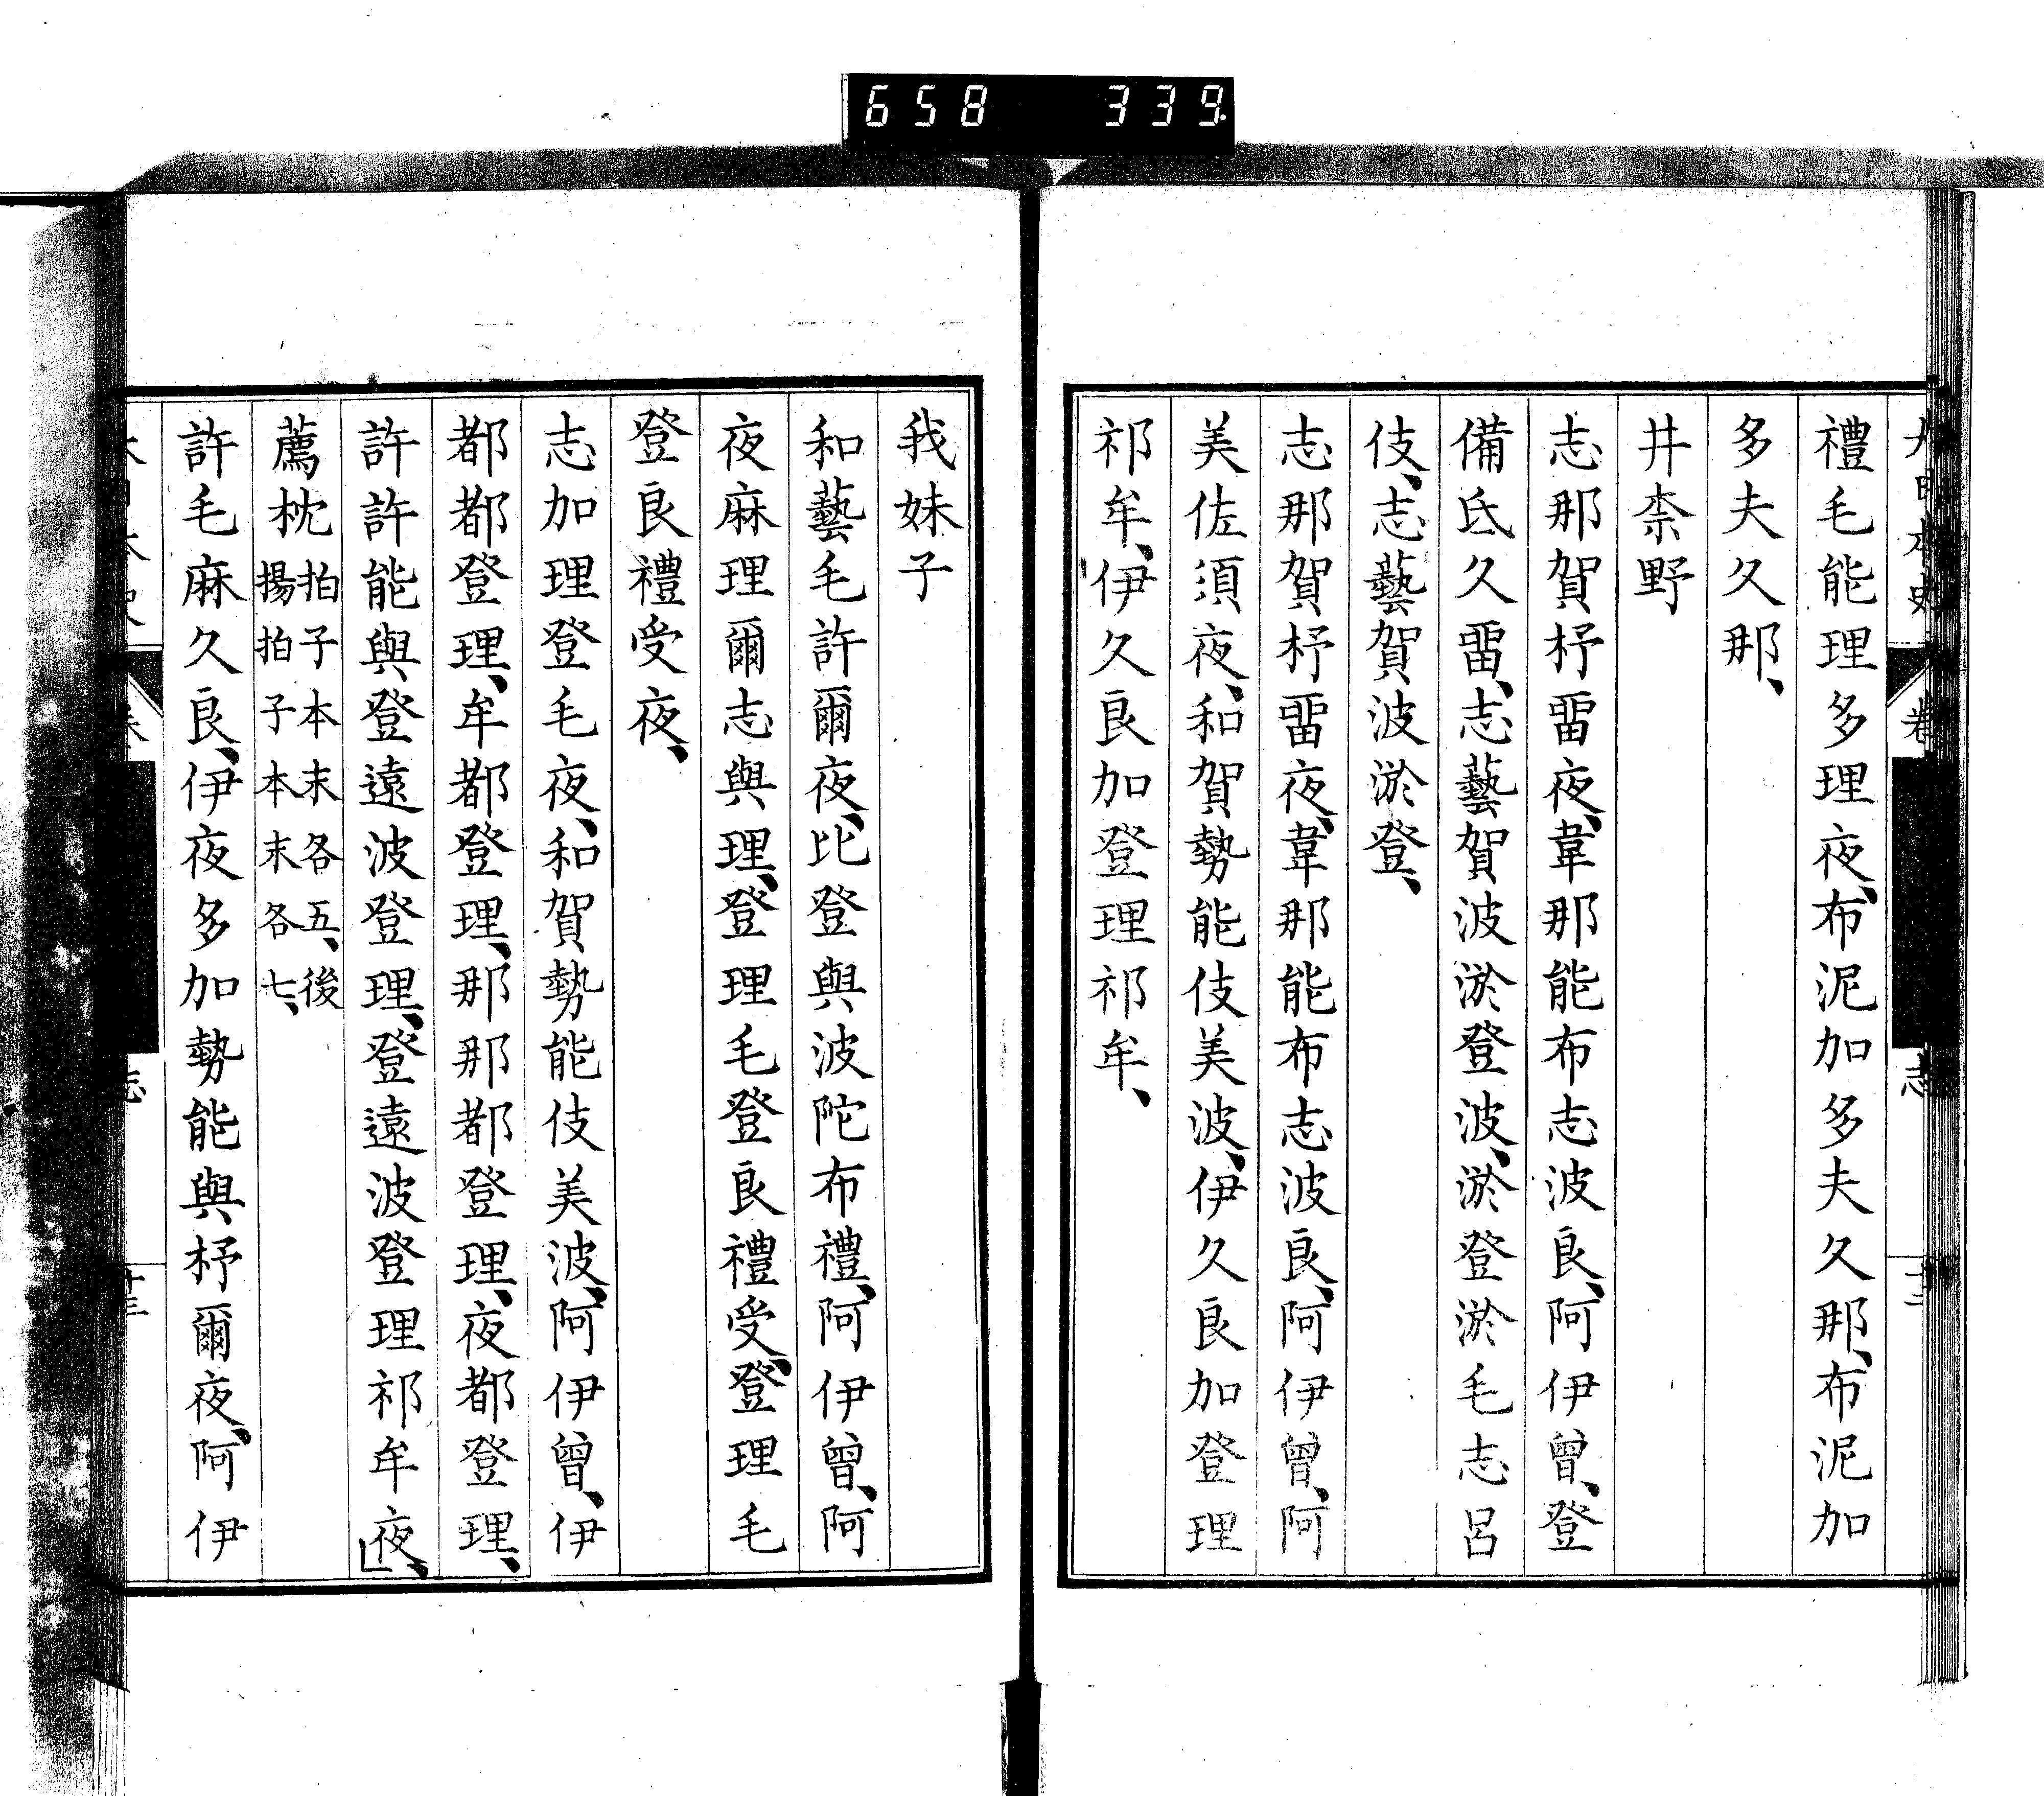 658 339
禮毛能理多理夜、布泥加多夫久那、布泥加
多夫久那、
井柰野
志那賀杼畱夜、韋那能布志波良、阿伊曾、登
備氐久畱、志藝賀波淤登波、淤登淤毛志呂
伎、志藝賀波淤登、
志那賀杼畱夜、韋那能布志波良、阿伊曾、阿
美佐須夜、和賀勢能伎美波、伊久良加登理
祁牟、伊久良加登理祁牟、
我妹子
和藝毛許爾夜、比登與波陀布禮、阿伊曾、阿
夜麻理爾志與理、登理毛登良禮受、登理毛
登良禮受夜、
志加理登毛夜、和賀勢能伎美波、阿伊曾、伊
都都登理、牟都登理、那那都登理、夜都登理、
許許能與登遠波登理、登遠波登理祁牟夜、
薦枕拍子本末各五、後
揚拍子本末各七、
許毛麻久良、伊夜多加勢能與杼爾夜、阿伊